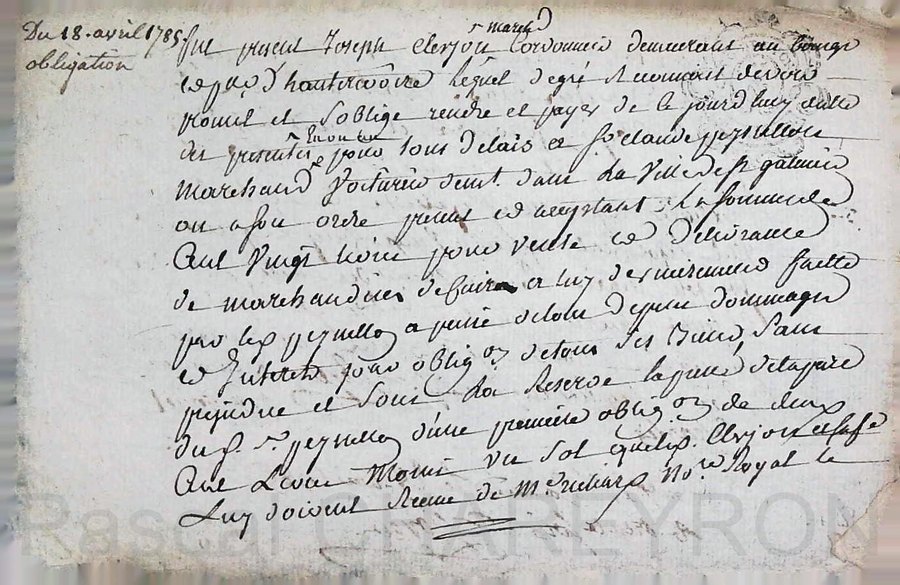 Du 18. avril 1785
obligation
md
fut present Joseph Clerjon Cordonnier demeurant au bourg
et d'hauterivoire lequel degré Reconnoit devoir
promet et soblige rendre et payer de ce jourdhuy datte
des presentes En un an pour tous delais a Sr Claude peyrellon
marchand Voiturier demt. dans La Ville de St galmier
ou a son ordre present et acceptant, La somme de
Cent Vingt livres pour vente et delivrance
de marchandises de Cuir a luy faitte
par led peyrellon a peine de tous depens dommages
et Interets pour obligon de tous ses biens, sans
prejudice et sous La Reserve de la part
du d. sr. peyrellon d'une premiere obligon de deux
Cent Livres moins un sol que led. Clerjon et sa fe
Luy doivent Receue de Me richard Nore Royal le
Pascal CHAREYRON